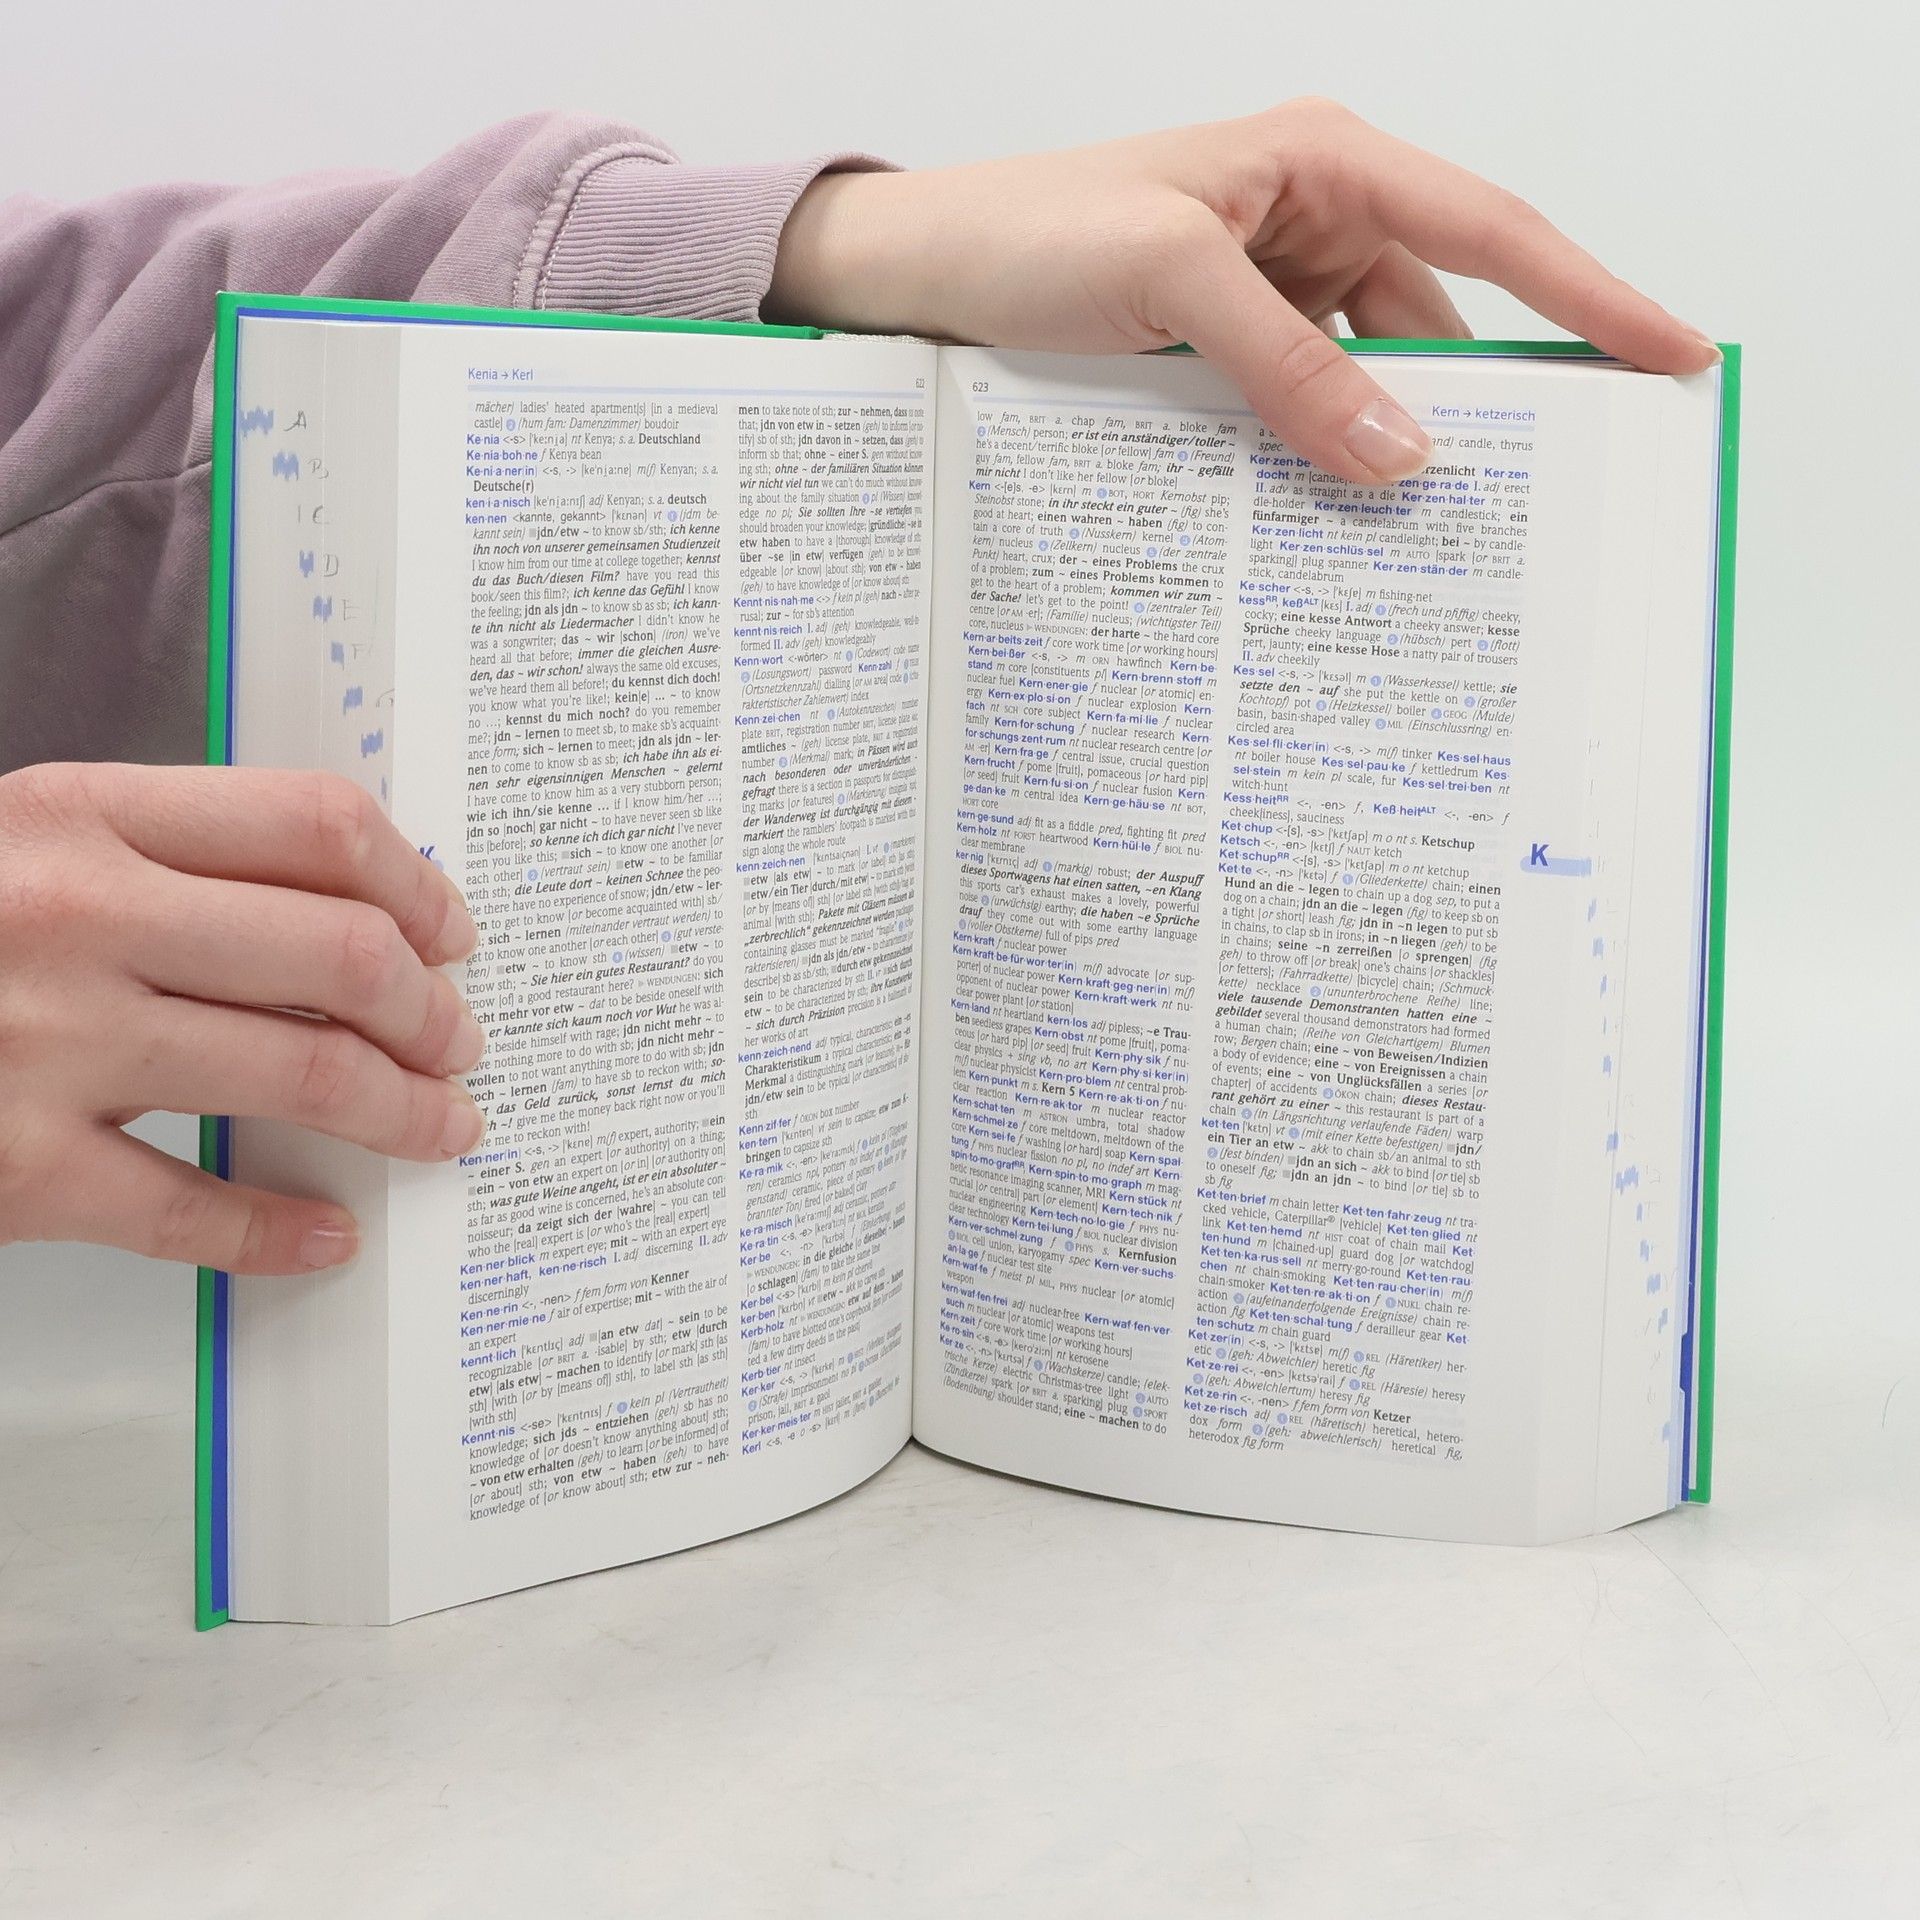 Kenia → Kerl
622
mächer) ladies' heated apartment[s] [in a medieval
castle] ❷ (hum fam: Damenzimmer) boudoir
Ke·nia <-s> ['ke:ni̯a] nt Kenya; s. a. Deutschland
Ke·nia·boh·ne f Kenya bean
Ke·ni·a·ner(in) <-s, -> [ke'ni̯a:nɐ] m(f) Kenyan; s. a.
Deutsche(r)
ken·i·a·nisch [ke'ni̯a:nɪʃ] adj Kenyan; s. a. deutsch
ken·nen <kannte, gekannt> ['kɛnən] vt ❶ (jdm be-
kannt sein) ■jdn/etw ~ to know sb/sth; ich kenne
ihn noch von unserer gemeinsamen Studienzeit
I know him from our time at college together; kennst
du das Buch/diesen Film? have you read this
book/seen this film?; ich kenne das Gefühl I know
the feeling; jdn als jdn ~ to know sb as sb; ich kann-
te ihn nicht als Liedermacher I didn't know he
was a songwriter; das ~ wir [schon] (iron) we've
heard all that before; immer die gleichen Ausre-
den, das ~ wir schon! always the same old excuses,
we've heard them all before!; du kennst dich doch!
you know what you're like!; kein[e] ... ~ to know
no ...; kennst du mich noch? do you remember
me?; jdn ~ lernen to meet sb, to make sb's acquaint-
ance form; sich ~ lernen to meet; jdn als jdn ~ ler-
nen to come to know sb as sb; ich habe ihn als ei-
nen sehr eigensinnigen Menschen ~ gelernt
I have come to know him as a very stubborn person;
wie ich ihn/sie kenne ... if I know him/her ...;
jdn so [noch] gar nicht ~ to have never seen sb like
this [before]; so kenne ich dich gar nicht! I've never
seen you like this; ■sich ~ to know one another [or
each other] ❷ (vertraut sein) ■etw ~ to be familiar
with sth; die Leute dort ~ keinen Schnee the peo-
ple there have no experience of snow; jdn/etw ~ ler-
en to get to know [or become acquainted with] sb/
; sich ~ lernen (miteinander vertraut werden) to
get to know one another [or each other] ❸ (gut verste-
hen) ■etw ~ to know sth ❹ (wissen) ■etw ~ to
know sth; ~ Sie hier ein gutes Restaurant? do you
know [of] a good restaurant here? ▶ WENDUNGEN: sich
icht mehr vor etw ~ dat to be beside oneself with
er kannte sich kaum noch vor Wut he was al-
st beside himself with rage; jdn nicht mehr ~ to
ve nothing more to do with sb; jdn nicht mehr ~
wollen to not want anything more to do with sb; jdn
noch ~ lernen (fam) to have sb to reckon with; so-
rt das Geld zurück, sonst lernst du mich
ch ~! give me the money back right now or you'll
ve me to reckon with!
Ken·ner(in) <-s, -> ['kɛnɐ] m(f) expert, authority; ■ein
~ einer S. gen an expert [or authority] on a thing;
■ein ~ von etw an expert on [or in] [or authority on]
sth; was gute Weine angeht, ist er ein absoluter ~
as far as good wine is concerned, he's an absolute con-
noisseur; da zeigt sich der [wahre] ~ you can tell
who the [real] expert is [or who's the [real] expert]
Ken·ner·blick m expert eye; mit ~ with an expert eye
ken·ner·haft, ken·ne·risch I. adj discerning II. adv
discerningly
Ken·ne·rin <-, -nen> f fem form von Kenner
Ken·ner·mie·ne f air of expertise; mit ~ with the air of
an expert
kennt·lich ['kɛntlɪç] adj ■[an etw dat] ~ sein to be
recognizable [or BRIT a. -isable] by sth; etw [durch
etw] [als etw] ~ machen to identify [or mark] sth [as
sth] [with [or by [means of]] sth], to label sth [as sth]
[with sth]
Kennt·nis <-se> ['kɛntnɪs] f ❶ kein pl (Vertrautheit)
knowledge; sich jds ~ entziehen (geh) sb has no
knowledge of [or doesn't know anything about] sth;
~ von etw erhalten (geh) to learn [or be informed] of
[or about] sth; von etw ~ haben (geh) to have
knowledge of [or know about] sth; etw zur ~ neh-
men to take note of sth; zur ~ nehmen, dass to note
that; jdn von etw in ~ setzen (geh) to inform [or no-
tify] sb of sth; jdn davon in ~ setzen, dass (geh) to
inform sb that; ohne ~ einer S. gen without know-
ing sth; ohne ~ der familiären Situation können
wir nicht viel tun we can't do much without know-
ing about the family situation ❷ pl (Wissen) knowl-
edge no pl; Sie sollten Ihre ~se vertiefen you
should broaden your knowledge; [gründliche] ~se in
etw haben to have a [thorough] knowledge of sth;
über ~se [in etw] verfügen (geh) to be knowl-
edgeable [or know] [about] sth; von etw ~ haben
(geh) to have knowledge of [or know about] sth
Kennt·nis·nah·me <-> f kein pl (geh) nach ~ after pe-
rusal; zur ~ for sb's attention
kennt·nis·reich I. adj (geh) knowledgeable, well-in-
formed II. adv (geh) knowledgeably
Kenn·wort <-wörter> nt ❶ (Codewort) code name
❷ (Losungswort) password Kenn·zahl f ❶ TELEK
(Ortsnetzkennzahl) dialling [or AM area] code ❷ (cha-
rakteristischer Zahlenwert) index
Kenn·zei·chen nt ❶ (Autokennzeichen) number
plate BRIT, registration number BRIT, license plate AM;
amtliches ~ (geh) license plate, BRIT a. registration
number ❷ (Merkmal) mark; in Pässen wird auch
nach besonderen oder unveränderlichen ~
gefragt there is a section in passports for distinguish-
ing marks [or features] ❸ (Markierung) insignia npl;
der Wanderweg ist durchgängig mit diesen ~
markiert the ramblers' footpath is marked with this
sign along the whole route
kenn·zeich·nen ['kɛntsaiçnən] I. vt ❶ (markieren)
■etw [als etw] ~ to mark [or label] sth [as sth];
■etw/ein Tier [durch/mit etw] ~ to mark sth [with
[or by [means of]] sth] [or label sth [with sth]]/tag an
animal [with sth]; Pakete mit Gläsern müssen als
„zerbrechlich“ gekennzeichnet werden packages
containing glasses must be marked "fragile" ❷ (cha-
rakterisieren) ■jdn als jdn/etw ~ to characterize [or
describe] sb as sb/sth; ■durch etw gekennzeichnet
sein to be characterized by sth II. vr ■sich durch
etw ~ to be characterized by sth; ihre Kunstwerke
~ sich durch Präzision precision is a hallmark of
her works of art
kenn·zeich·nend adj typical, characteristic; ein ~es
Charakteristikum a typical characteristic; ein ~es
Merkmal a distinguishing mark [or feature]; für
jdn/etw sein to be typical [or characteristic] of sb/
sth
Kenn·zif·fer f ÖKON box number
ken·tern ['kɛntɐn] vi sein to capsize; etw zum K-
bringen to capsize sth
Ke·ra·mik <-, -en> [ke'ra:mɪk] f ❶ kein pl (Töpferwa-
ren) ceramics npl, pottery no indef art ❷ (Kunstge-
genstand) ceramic, piece of pottery
brannter Ton) fired [or baked] clay
ke·ra·misch [ke'ra:mɪʃ] adj ceramic, pottery attr
Ke·ra·tin <-s, -e> [kera'ti:n] nt keratin
Ker·be <-, -n> ['kɛrbə] f
▶ WENDUNGEN: in die gleiche [o dieselbe] ~ hauen
[o schlagen] (fam) to take the same line
Ker·bel <-s> ['kɛrbl̩] m kein pl chervil
ker·ben ['kɛrbn̩] vt ■etw ~ akk to carve sth
Kerb·holz nt ▶ WENDUNGEN: etw auf dem ~ haben
(fam) to have blotted one's copybook fam [or commit-
ted a few dirty deeds in the past]
Kerb·tier nt insect
Ker·ker <-s, -> ['kɛrkɐ] m
❷ (Strafe) imprisonment no pl
prison, jail, BRIT a. gaol
Ker·ker·meis·ter m HIST jailer, BRIT a. gaoler
Kerl <-s, -e o -s> [kɛrl] m
623
Kern → ketzerisch
low fam, BRIT a. chap fam, BRIT a. bloke fam
❷ (Mensch) person; er ist ein anständiger/toller ~
he's a decent/terrific bloke [or fellow] fam ❸ (Freund)
guy fam, fellow fam, BRIT a. bloke fam; ihr ~ gefällt
mir nicht! I don't like her fellow [or bloke]
Kern <-[e]s, -e> [kɛrn] m ❶ BOT, HORT Kernobst pip;
Steinobst stone; in ihr steckt ein guter ~ (fig) she's
good at heart; einen wahren ~ haben (fig) to con-
tain a core of truth ❷ (Nusskern) kernel ❸ (Atom-
kern) nucleus ❹ (Zellkern) nucleus ❺ (der zentrale
Punkt) heart, crux; der ~ eines Problems the crux
of a problem; zum ~ eines Problems kommen to
get to the heart of a problem; kommen wir zum ~
der Sache! let's get to the point! ❻ (zentraler Teil)
centre [or AM -er]; (Familie) nucleus; (wichtigster Teil)
core, nucleus ▶ WENDUNGEN: der harte ~ the hard core
Kern·ar·beits·zeit f core work time [or working hours]
Kern·bei·ßer <-s, -> m ORN hawfinch Kern·be-
stand m core [constituents pl] Kern·brenn·stoff m
nuclear fuel Kern·ener·gie f nuclear [or atomic] en-
ergy Kern·ex·plo·si·on f nuclear explosion Kern-
fach nt SCH core subject Kern·fa·mi·lie f nuclear
family Kern·for·schung f nuclear research Kern-
for·schungs·zent·rum nt nuclear research centre [or
AM -er] Kern·fra·ge f central issue, crucial question
Kern·frucht f pome [fruit], pomaceous [or hard pip]
[or seed] fruit Kern·fu·si·on f nuclear fusion Kern-
ge·dan·ke m central idea Kern·ge·häu·se nt BOT,
HORT core
kern·ge·sund adj fit as a fiddle pred, fighting fit pred
Kern·holz nt FORST heartwood Kern·hül·le f BIOL nu-
clear membrane
ker·nig ['kɛrnɪç] adj ❶ (markig) robust; der Auspuff
dieses Sportwagens hat einen satten, ~en Klang
this sports car's exhaust makes a lovely, powerful
noise ❷ (urwüchsig) earthy; die haben ~e Sprüche
drauf they come out with some earthy language
❸ (voller Obstkerne) full of pips pred
Kern·kraft f nuclear power
Kern·kraft·be·für·wor·ter(in) m(f) advocate [or sup-
porter] of nuclear power Kern·kraft·geg·ner(in) m(f)
opponent of nuclear power Kern·kraft·werk nt nu-
clear power plant [or station]
Kern·land nt heartland kern·los adj pipless; ~e Trau-
ben seedless grapes Kern·obst nt pome [fruit], poma-
ceous [or hard pip] [or seed] fruit Kern·phy·sik f nu-
clear physics + sing vb, no art Kern·phy·si·ker(in)
m(f) nuclear physicist Kern·pro·blem nt central prob-
lem Kern·punkt m s. Kern 5 Kern·re·ak·ti·on f nu-
clear reaction Kern·re·ak·tor m nuclear reactor
Kern·schat·ten m ASTRON umbra, total shadow
Kern·schmel·ze f core meltdown, meltdown of the
core Kern·sei·fe f washing [or hard] soap Kern·spal-
tung f PHYS nuclear fission no pl, no indef art Kern-
spin·to·mo·graf^RR, Kern·spin·to·mo·graph m mag-
netic resonance imaging scanner, MRI Kern·stück nt
crucial [or central] part [or element] Kern·tech·nik f
nuclear engineering Kern·tech·no·lo·gie f PHYS nu-
clear technology Kern·tei·lung f BIOL nuclear division
Kern·ver·schmel·zung f ❶ PHYS s. Kernfusion
❷ BIOL cell union, karyogamy spec Kern·ver·suchs-
an·la·ge f nuclear test site
Kern·waf·fe f meist pl MIL, PHYS nuclear [or atomic]
weapon
kern·waf·fen·frei adj nuclear-free Kern·waf·fen·ver-
such m nuclear [or atomic] weapons test
Kern·zeit f core work time [or working hours]
Ke·ro·sin <-s, -e> [kero'zi:n] nt kerosene
Ker·ze <-, -n> ['kɛrtsə] f ❶ (Wachskerze) candle; (elek-
trische Kerze) electric Christmas-tree light ❷ AUTO
(Zündkerze) spark [or BRIT a. sparking] plug ❸ SPORT
(Bodenübung) shoulder stand; eine ~ machen to do
a s
and) candle, thyrus
spec
Ker·zen·be
rzenlicht Ker·zen-
docht m [candle
zen·ge·ra·de I. adj erect
II. adv as straight as a die Ker·zen·hal·ter m can-
dle-holder Ker·zen·leuch·ter m candlestick; ein
fünfarmiger ~ a candelabrum with five branches
Ker·zen·licht nt kein pl candlelight; bei ~ by candle-
light Ker·zen·schlüs·sel m AUTO [spark [or BRIT a.
sparking]] plug spanner Ker·zen·stän·der m candle-
stick, candelabrum
Ke·scher <-s, -> ['kɛʃɐ] m fishing-net
kess^RR, keß^ALT [kɛs] I. adj ❶ (frech und pfiffig) cheeky,
cocky; eine kesse Antwort a cheeky answer; kesse
Sprüche cheeky language ❷ (hübsch) pert ❸ (flott)
pert, jaunty; eine kesse Hose a natty pair of trousers
II. adv cheekily
Kes·sel <-s, -> ['kɛsəl] m ❶ (Wasserkessel) kettle; sie
setzte den ~ auf she put the kettle on ❷ (großer
Kochtopf) pot ❸ (Heizkessel) boiler ❹ GEOG (Mulde)
basin, basin-shaped valley ❺ MIL (Einschlussring) en-
circled area
Kes·sel·fli·cker(in) <-s, -> m(f) tinker Kes·sel·haus
nt boiler house Kes·sel·pau·ke f kettledrum Kes-
sel·stein m kein pl scale, fur Kes·sel·trei·ben nt
witch-hunt
Kess·heit^RR <-, -en> f, Keß·heit^ALT <-, -en> f
cheek[iness], sauciness
Ket·chup <-[s], -s> ['kɛtʃap] m o nt s. Ketschup
Ketsch <-, -en> [kɛtʃ] f NAUT ketch
Ket·schup^RR <-[s], -s> ['kɛtʃap] m o nt ketchup
Ket·te <-, -n> ['kɛtə] f ❶ (Gliederkette) chain; einen
Hund an die ~ legen to chain up a dog sep, to put a
dog on a chain; jdn an die ~ legen (fig) to keep sb on
a tight [or short] leash fig; jdn in ~n legen to put sb
in chains, to clap sb in irons; in ~n liegen (geh) to be
in chains; seine ~n zerreißen [o sprengen] (fig
geh) to throw off [or break] one's chains [or shackles]
[or fetters]; (Fahrradkette) [bicycle] chain; (Schmuck-
kette) necklace ❷ (ununterbrochene Reihe) line;
viele tausende Demonstranten hatten eine ~
gebildet several thousand demonstrators had formed
a human chain; (Reihe von Gleichartigem) Blumen
row; Bergen chain; eine ~ von Beweisen/Indizien
a body of evidence; eine ~ von Ereignissen a chain
of events; eine ~ von Unglücksfällen a series [or
chapter] of accidents ❸ ÖKON chain; dieses Restau-
rant gehört zu einer ~ this restaurant is part of a
chain ❹ (in Längsrichtung verlaufende Fäden) warp
ket·ten ['kɛtn̩] vt ❶ (mit einer Kette befestigen) ■jdn/
ein Tier an etw ~ akk to chain sb/an animal to sth
❷ (fest binden) ■jdn an sich ~ akk to bind [or tie] sb
to oneself fig; ■jdn an jdn ~ to bind [or tie] sb to
sb fig
Ket·ten·brief m chain letter Ket·ten·fahr·zeug nt tra-
cked vehicle, Caterpillar® [vehicle] Ket·ten·glied nt
link Ket·ten·hemd nt HIST coat of chain mail Ket-
ten·hund m [chained-up] guard dog [or watchdog]
Ket·ten·ka·rus·sell nt merry-go-round Ket·ten·rau-
chen nt chain-smoking Ket·ten·rau·cher(in) m(f)
chain-smoker Ket·ten·re·ak·ti·on f ❶ NUKL chain re-
action ❷ (aufeinanderfolgende Ereignisse) chain re-
action fig Ket·ten·schal·tung f derailleur gear Ket-
ten·schutz m chain guard
Ket·zer(in) <-s, -> ['kɛtsɐ] m(f) ❶ REL (Häretiker) her-
etic ❷ (geh: Abweichler) heretic fig
Ket·ze·rei <-, -en> [kɛtsə'rai] f ❶ REL (Häresie) heresy
❷ (geh: Abweichlertum) heresy fig
Ket·ze·rin <-, -nen> f fem form von Ketzer
ket·ze·risch adj ❶ REL (häretisch) heretical, hetero-
dox form ❷ (geh: abweichlerisch) heretical fig,
heterodox fig form
K
K
A
B
C
D
E
F